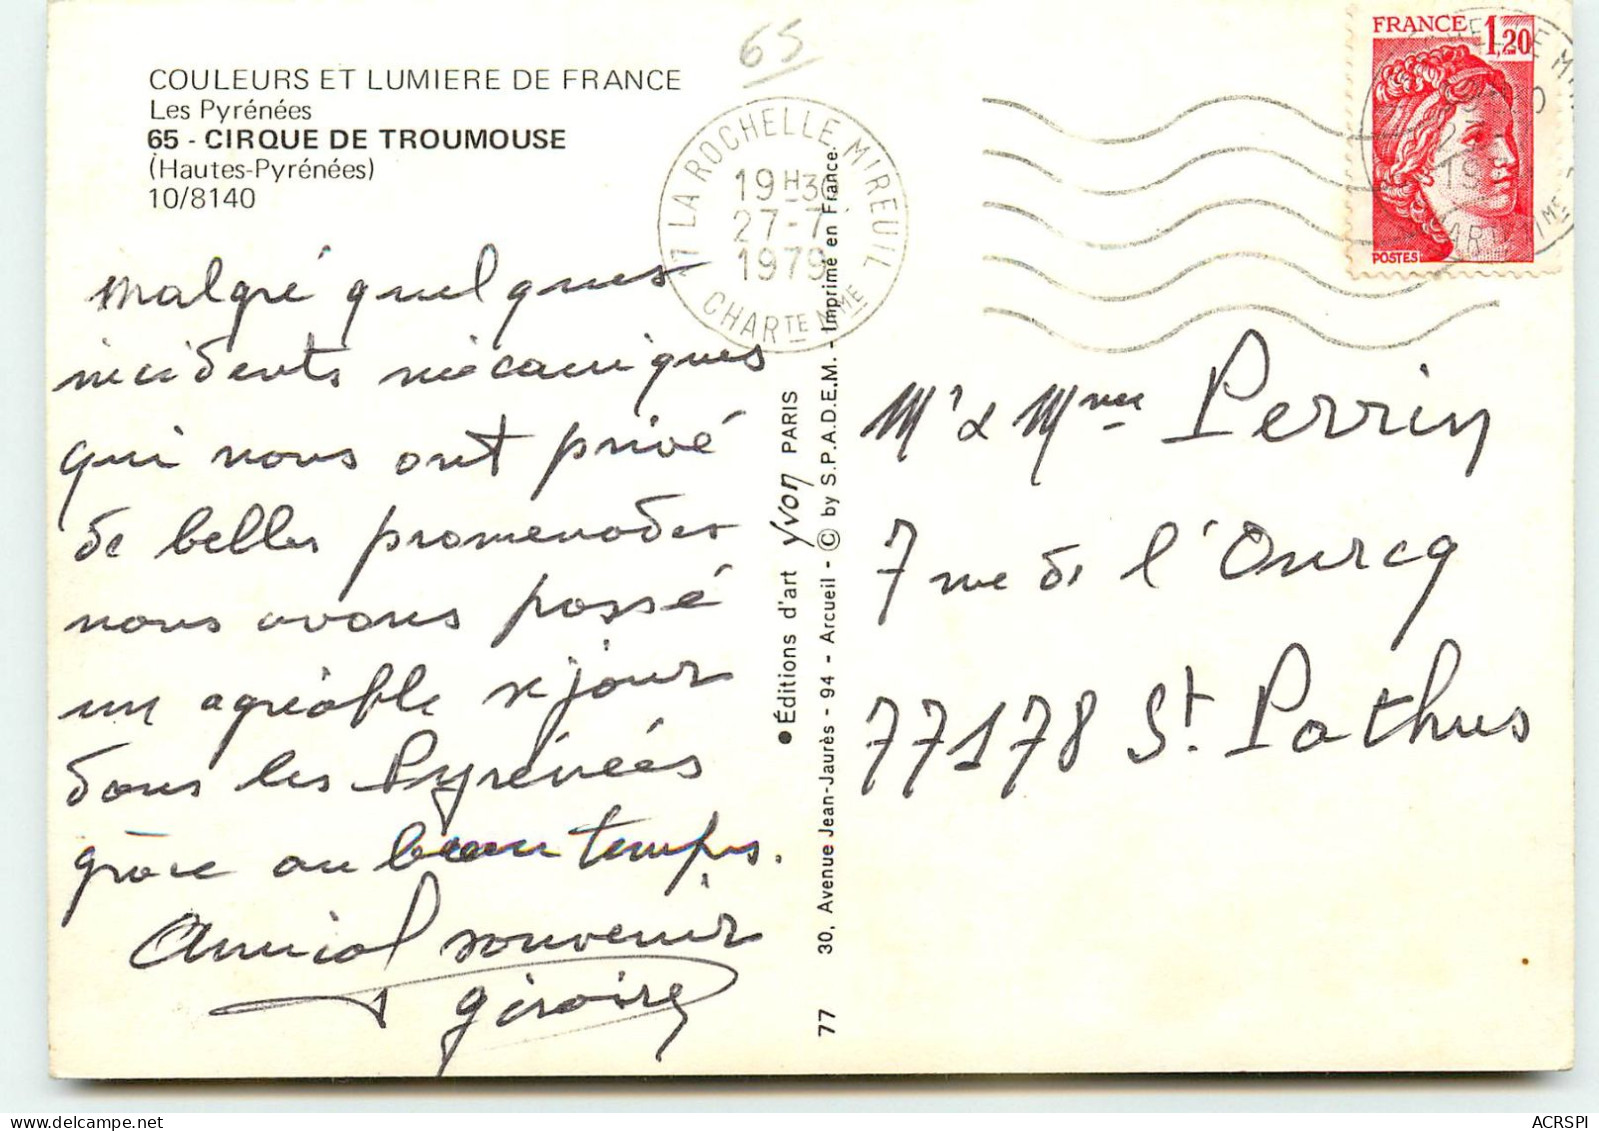 65
COULEURS ET LUMIERE DE FRANCE
Les Pyrénées
65 - CIRQUE DE TROUMOUSE
(Hautes-Pyrénées)
10/8140
17 LA ROCHELLE MIREUIL
19 H30
27-7
1979
CHARTE MME
FRANCE 1,20
POSTES
malgré quelques
incidents mécaniques
qui nous ont privé
de belles promenades
nous avons passé
un agréable séjour
dans les Pyrénées
grâce au beau temps.
Amical souvenir
● Éditions d'art yvon PARIS
30, Avenue Jean-Jaurès - 94 - Arcueil - © by S.P.A.D.E.M. - Imprimé en France.
77
Mr & Mme Perrin
7 rue de l'Ourcq
77178 St. Pathus
ACRSPI